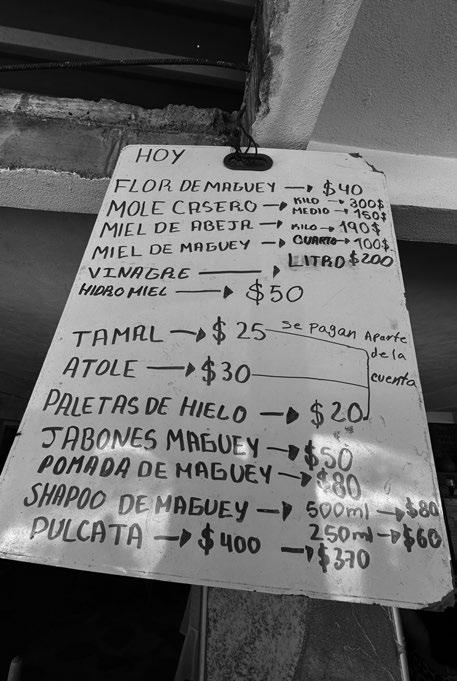 HOY
FLOR DE MAGUEY → $40
MOLE CASERO → KILO → 300$
MEDIO → 150$
MIEL DE ABEJA → KILO → 190$
MIEL DE MAGUEY → CUARTO → 100$
LITRO $200
VINAGRE →
HIDROMIEL → $50
TAMAL → $25 se pagan Aparte
de la
ATOLE → $30 cuenta
PALETAS DE HIELO → $20
JABONES MAGUEY → $50
POMADA DE MAGUEY → $80
SHAPOO DE MAGUEY → 500ml → $80
250ml → $60
PULCATA → $400 → $370